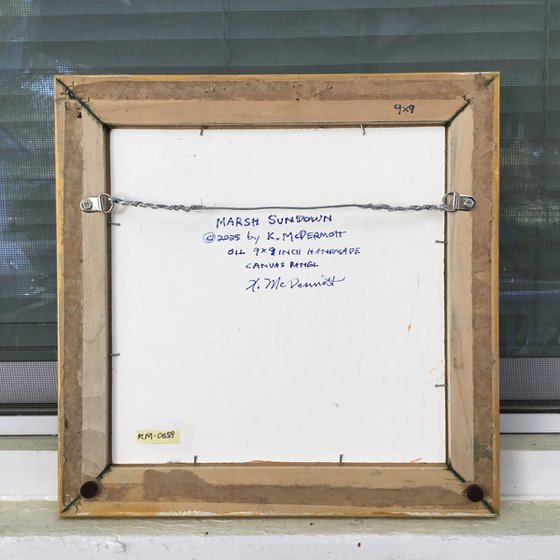 9x9
MARSH SUNDOWN
©2005 by K. McDERMOTT
OIL 9x9 INCH HANDMADE
CANVAS PANEL
K. McDermott
KM-0659